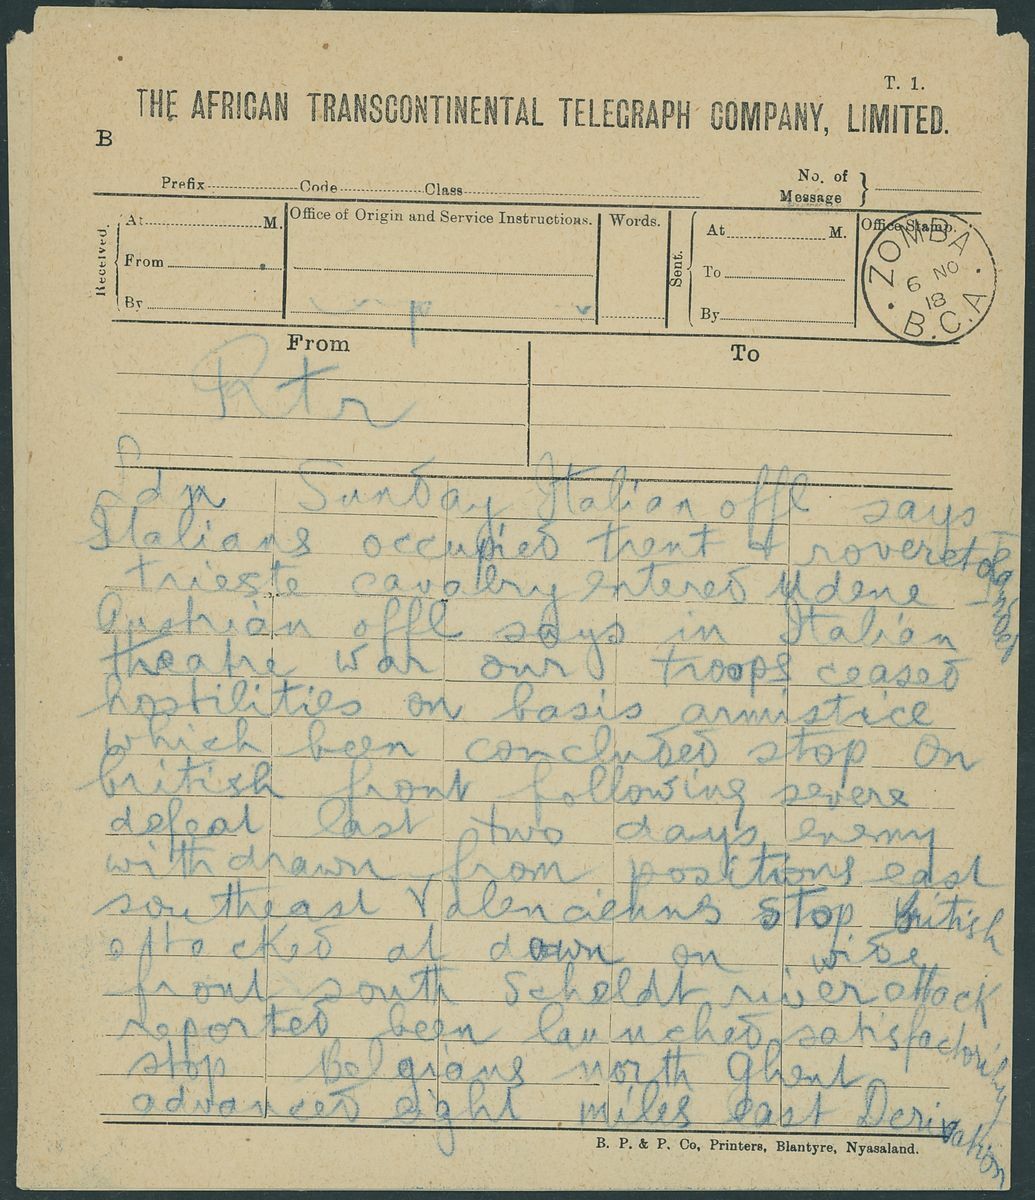 T. 1.
THE AFRICAN TRANSCONTINENTAL TELEGRAPH COMPANY, LIMITED.
B
Prefix Code Class No. of Message
Received. At M. From By
Office of Origin and Service Instructions.
Words.
Sent. At M. To By
Office Stamp.
ZOMBA
6 NO
18
B.C.A.
From To
Rtr
Ldn Sunday Italian offl says
Italians occupied trent & rovereto landed
trieste cavalry entered Udene
Austrian offl says in Italian
theatre war our troops ceased
hostilities on basis armistice
which been concluded stop On
british front following severe
defeat last two days enemy
withdrawn from positions east
southeast Valenciennes stop british
attacked at dawn on wide
front south Scheldt river attack
reported been launched satisfactorily
stop Belgians north Ghent
advanced eight miles east Derivation
B. P. & P. Co, Printers, Blantyre, Nyasaland.